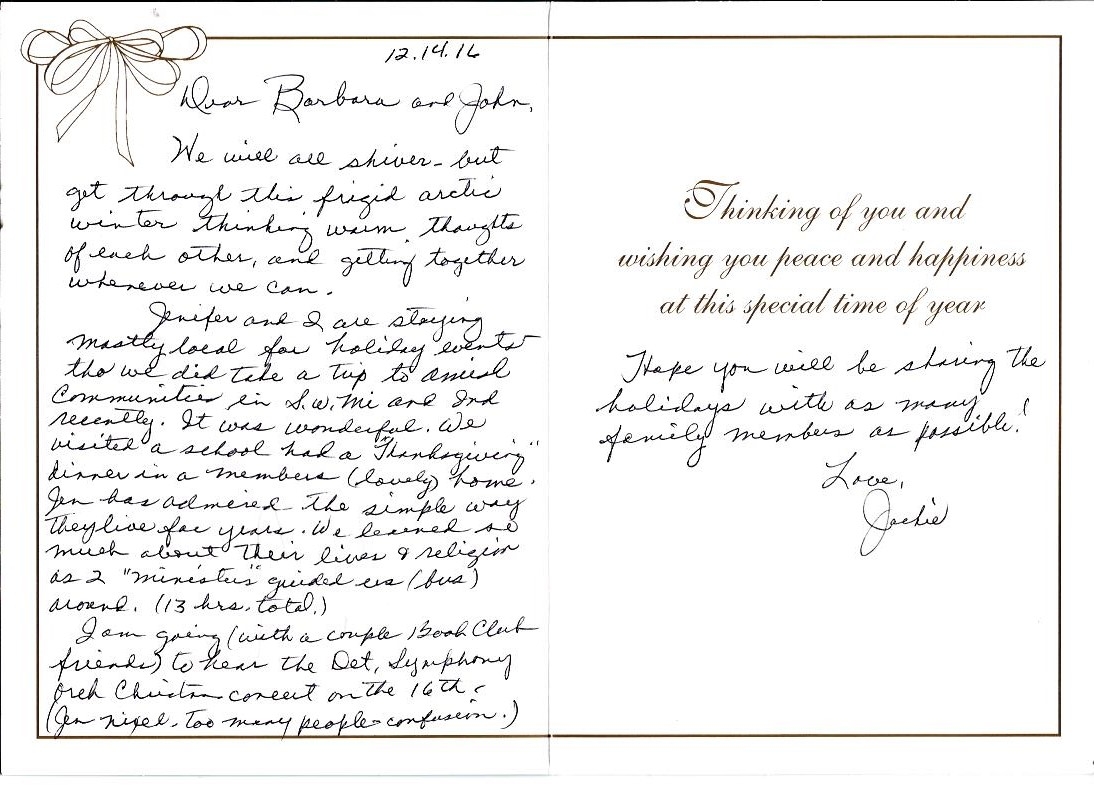 12.14.16
Dear Barbara and John,
We will all shiver - but
get through this frigid arctic
winter thinking warm thoughts
of each other, and getting together
whenever we can.
Jenifer and I are staying
mostly local for holiday events
tho we did take a trip to amish
Communities in S.W. Mi and Ind
recently. It was wonderful. We
visited a school had a "Thanksgiving"
dinner in a members (lovely) home.
Jen has admired the simple way
they live for years. We learned so
much about their lives & religion
as 2 "ministers" guided us (bus)
around. (13 hrs. total.)
I am going (with a couple Book Club
friends) to hear the Det. Symphony
Orch Christmas concert on the 16th.
(Jen nixed - too many people - confusion.)
Thinking of you and
wishing you peace and happiness
at this special time of year
Hope you will be sharing the
holidays with as many
family members as possible!
Love,
Jackie